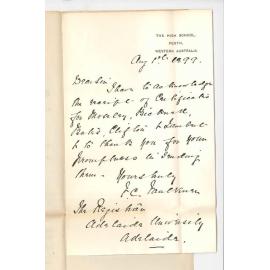 THE HIGH SCHOOL,
PERTH,
WESTERN AUSTRALIA.
Aug 1st 1899.
Dear Sir
I have to acknowledge
the receipt of Certificates
for
&
to thank you for your
promptness in sending
them.
Yours truly
F.C. Faulkner
The Registrar
Adelaide University
Adelaide.